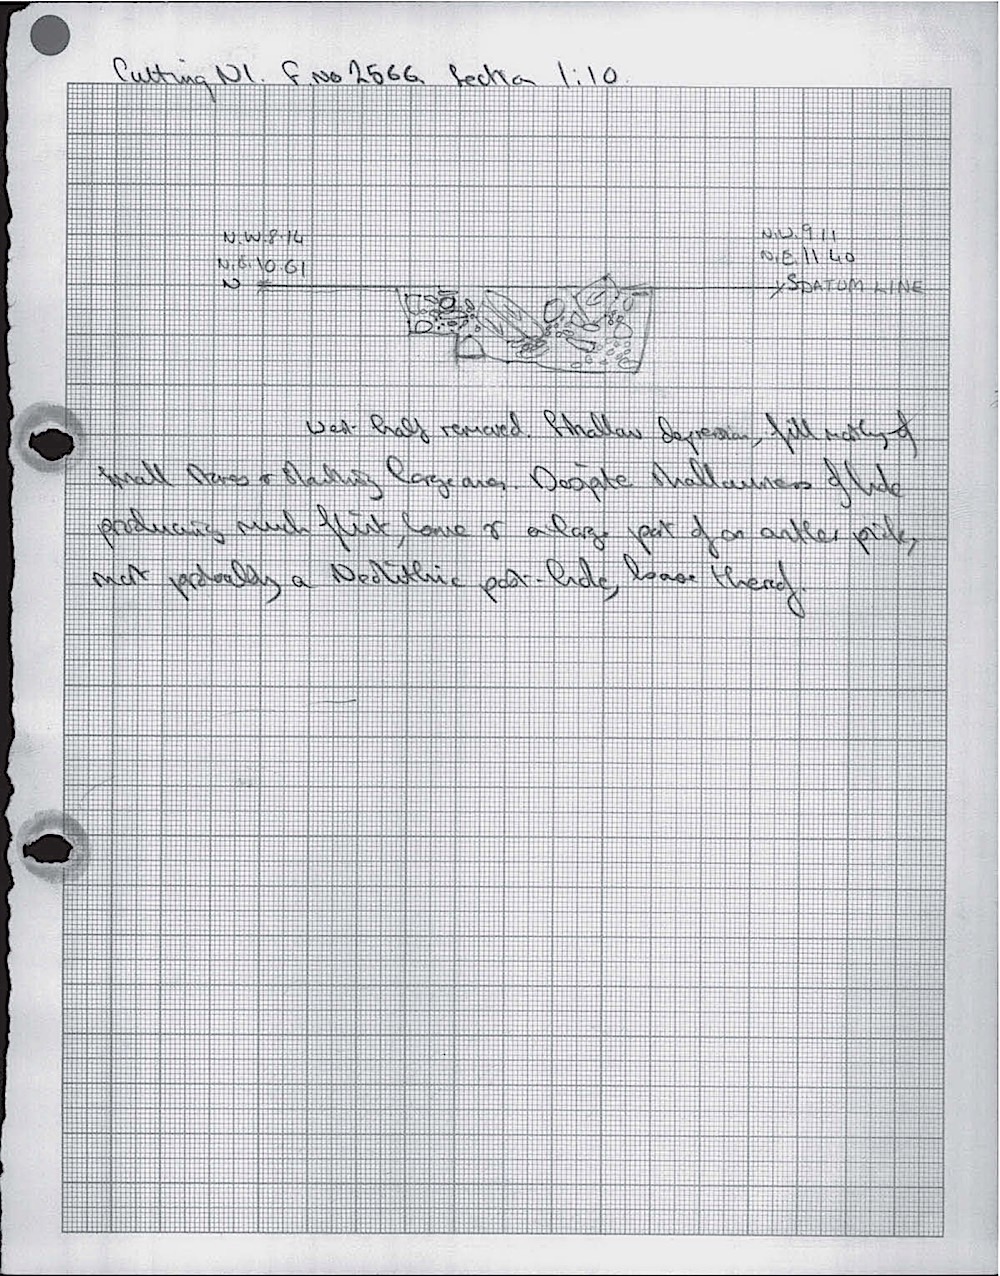 Cutting N1. F. No 2566 Section 1:10.
N.W. 8.14
N.E. 10.61
N
N.W. 9 11
N.E. 11 40
S DATUM LINE
West half removed. Shallow depression, fill mostly of
small stones & slanting large ones. Despite shallowness of hole
producing much flint, bone & a large part of an antler pick,
most probably a Neolithic post-hole, base thereof.